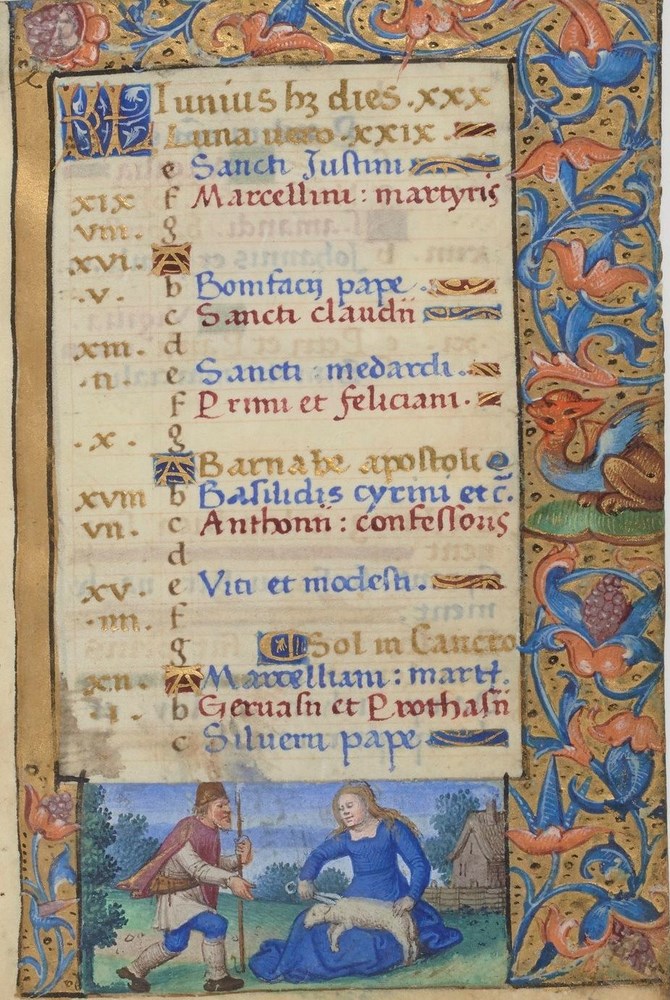 KL Iunius hz dies .xxx
Luna uero .xxix.
e Sancti Justini
xix f Marcellini : martyris
viii. g
xvi. A
.v. b Bonifacij pape .
c Sancti claudii
xiii. d
.ii. e Sancti medardi.
f Primi et feliciani.
.x. g
A Barnabe apostoli
xviii b Basilidis cyrini et c.
vii. c Anthonii : confessoris
d
xv. e Viti et modesti.
.iiii. f
g Sol in Cancro
xii. A Marcelliani : martt.
.i. b Geruasii et Prothasii
c Siluerii pape